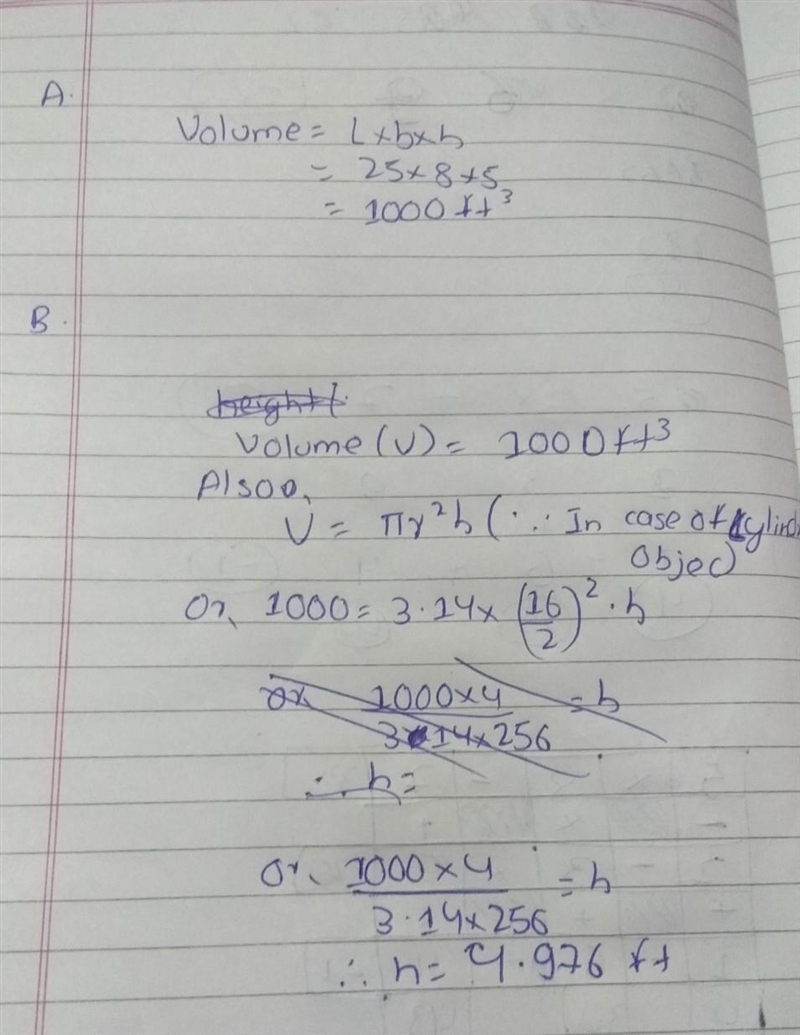 A.
Volume = L×b×h
= 25×8×5
= 1000 ft³
B.
height
Volume (V) = 1000 ft³
Also,
V = πr²h (∵ In case of cylind
Objec)
Or, 1000 = 3.14× (16/2)² · h
or 1000×4 / 3.14×256 = h
∴ h =
Or, 1000×4 / 3.14×256 = h
∴ h = 4.976 ft